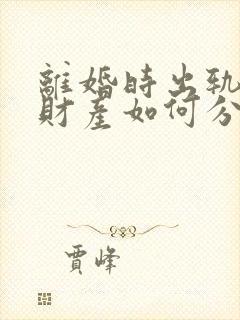 離婚時出軌
財產如何分
賈峰